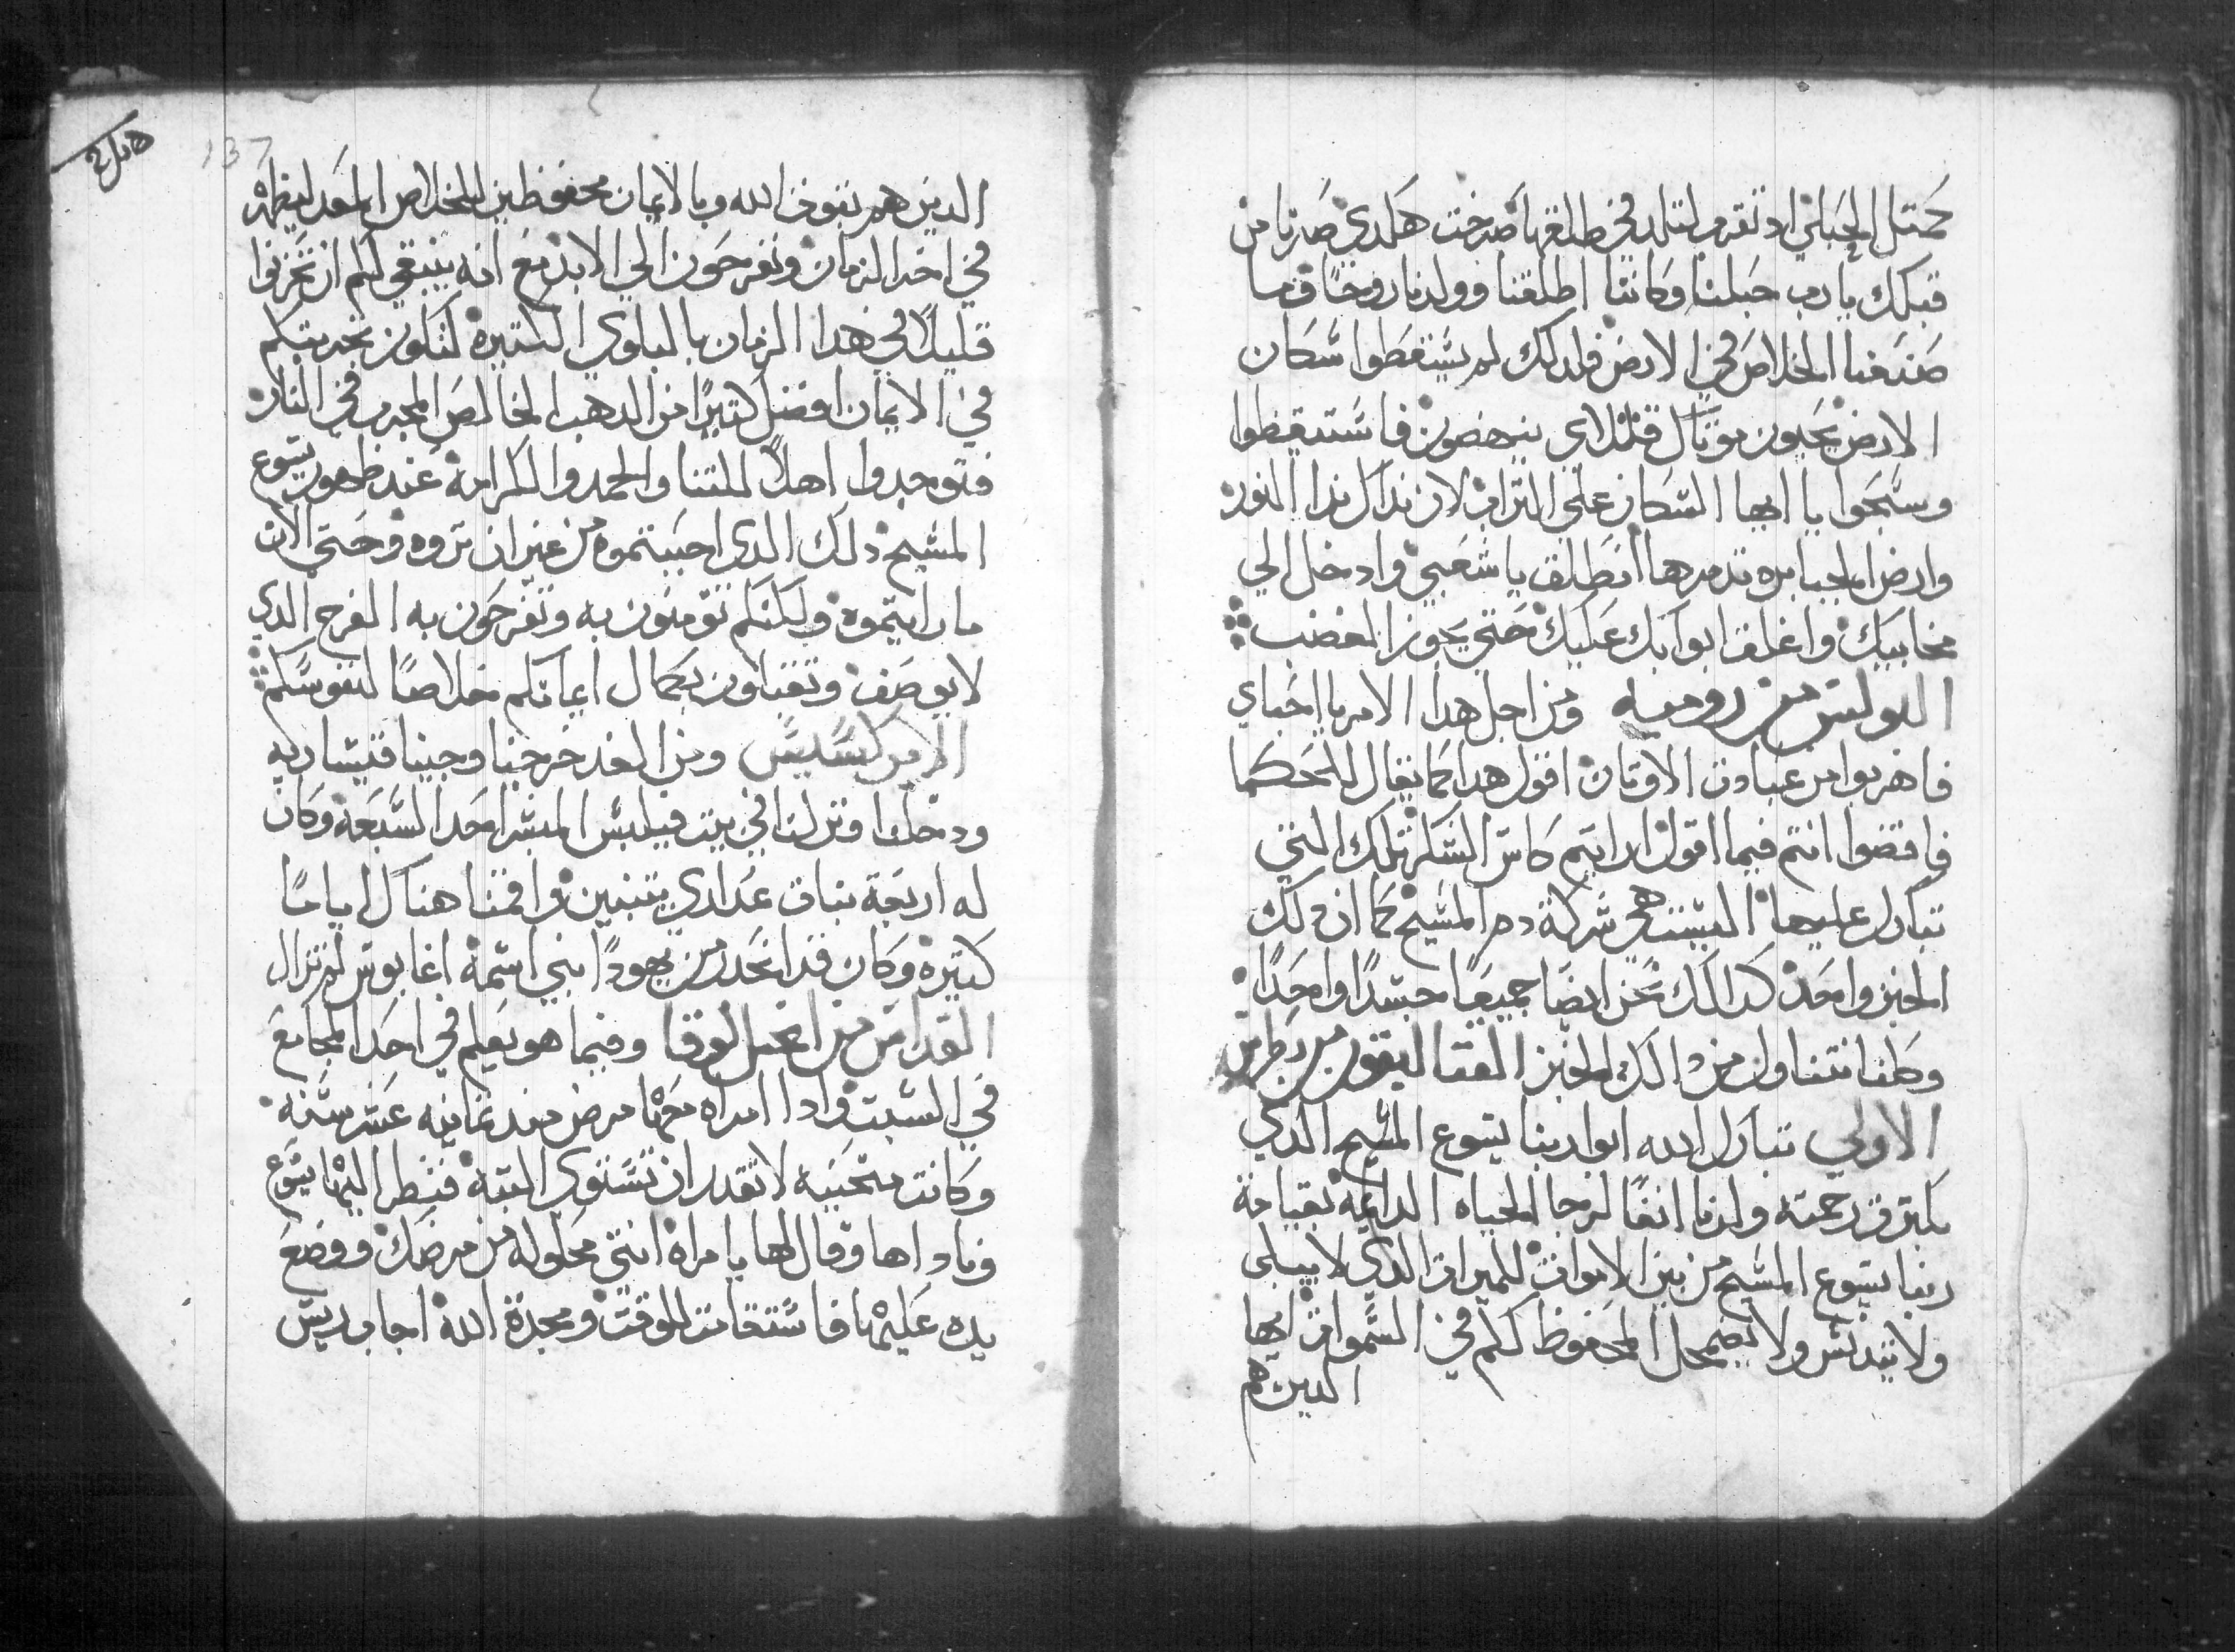 كمتل الحبلي اد تقرم لتلد في طلقها صرخت هكدي صرنا من
قبلك يا رب حبلنا وكاننا اطلقنا وولدنا روحًا وما
صنعنا الخلاص في الارض فلدلك لم يستقطوا سكان
الارض يحيون موتاك قتلاي ينهضون فاستيقظوا
وسبحوا يا ايها السكان علي التراب لان نداك ندا النور
وارض الجبابره تدمرها انطلق يا شعبي وادخل الي
مخابيك واغلق ابوابك عليك حتي يجوز الغضب
البولس من روميه ومن اجل هدا الامر يا احباي
فاهربوا من عبادت الاوتان اقول هدا كما يقال للحكما
فاقضوا انتم فيما اقول ارايتم كاس الشكر تلك التي
تبارك عليها اليست هي شركة دم المسيح كما ان دلك
الخبز واحد كدالك نحن ايضا جميعًا جسدًا واحدًا
وكلنا نتناول من دالك الخبز القتاليقون من بطرس
الاولي تبارك الله ابو ربنا يسوع المسيح الدي
بكترت رحمته ولدنا انفًا لرجا الحياه الدايمه بقيامة
ربنا يسوع المسيح من بين الاموات للميرات الدي لا يبلي
ولا يتدنس ولا يضمحل المحفوظ لكم في السموات ايها
الدين هم
137
الدين هم بقوت الله وبالايمان محفوظين للخلاص المعد ليظهر
في اخر الزمان وتفرحون الي الابد مع انه ينبغي لكم ان تحزنوا
قليلًا في هدا الزمان بالبلوي الكتيره لتكون تجربتكم
في الايمان افضل كتيرًا من الدهب الخالص المجرب في النار
فتوجدوا اهلًا للتنا والحمد والكرامة عند ظهور يسوع
المسيح دلك الدي احببتموه من غير ان تروه وحتي الان
ما رايتموه ولكنكم تومنون به وتفرحون به الفرح الدي
لا يوصف وتقبلون بكمال ايمانكم خلاصًا لنفوسكم
الابركسيس ومن الغد خرجنا وجينا قيساريه
ودخلنا ونزلنا في بيت فيلبس المبشر احد السبعة وكان
له اربعة بنات عداري يتنبين واقمنا هناك ايامًا
كتيره وكان قد انحدر من يهودا نبي اسمه اغابوس لم تزال
القداس من انجيل لوقا وفيما هو يعلم في احد المجامع
في السبت وادا امراه معها مرض مند تمانيه عشر سنه
وكانت منحنيه لا تقدر ان تستوي البته فنظر اليها يسوع
وناداها وقال لها يا مراه انتي محلوله من مرضك ووضع
يده عليها فاستقامت للوقت ومجدة الله اجاب ريس